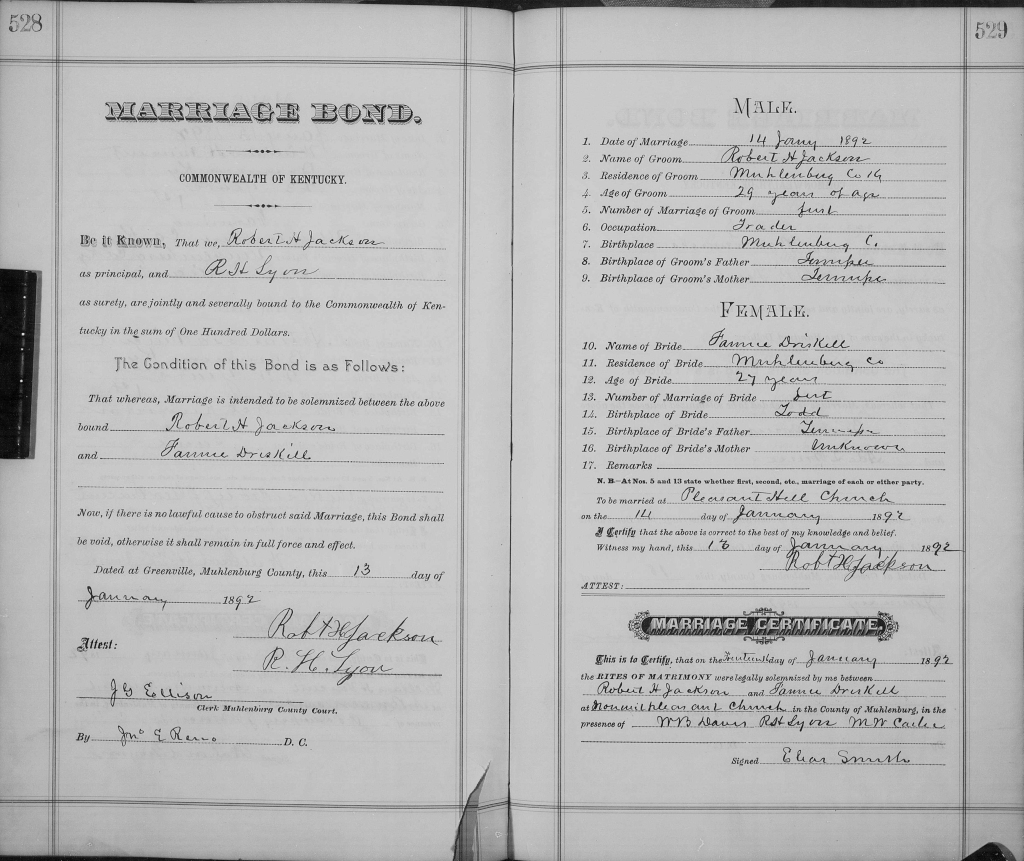 528
MARRIAGE BOND.
COMMONWEALTH OF KENTUCKY.
Be it Known, That we, Robert H Jackson
as principal, and R H Lyon
as surety, are jointly and severally bound to the Commonwealth of Ken-
tucky in the sum of One Hundred Dollars.
The Condition of this Bond is as Follows:
That whereas, Marriage is intended to be solemnized between the above
bound Robert H Jackson
and Fannie Driskill
Now, if there is no lawful cause to obstruct said Marriage, this Bond shall
be void, otherwise it shall remain in full force and effect.
Dated at Greenville, Muhlenburg County, this 13 day of
January 1892
Attest: Robt H Jackson
R. H. Lyon
J G Ellison
Clerk Muhlenburg County Court.
By Jno E Reno D. C.
529
MALE.
1. Date of Marriage 14 Jany 1892
2. Name of Groom Robert H Jackson
3. Residence of Groom Muhlenburg Co
4. Age of Groom 29 years of age
5. Number of Marriage of Groom first
6. Occupation Trader
7. Birthplace Muhlenburg C.
8. Birthplace of Groom's Father
9. Birthplace of Groom's Mother
FEMALE.
10. Name of Bride Fannie Driskell
11. Residence of Bride Muhlenburg Co
12. Age of Bride 27 years
13. Number of Marriage of Bride first
14. Birthplace of Bride Todd
15. Birthplace of Bride's Father
16. Birthplace of Bride's Mother Unknown
17. Remarks
N. B.—At Nos. 5 and 13 state whether first, second, etc., marriage of each or either party.
To be married at Pleasant Hill Church
on the 14 day of January 1892
I Certify that the above is correct to the best of my knowledge and belief.
Witness my hand, this 13 day of January 1892
Robt H Jackson
ATTEST:
MARRIAGE CERTIFICATE.
This is to Certify, that on the day of January 1892
the RITES OF MATRIMONY were legally solemnized by me between
Robert H Jackson and Fannie Driskell
at Church in the County of Muhlenburg, in the
presence of W B Davis R H Lyon M W
Signed Elias Smith